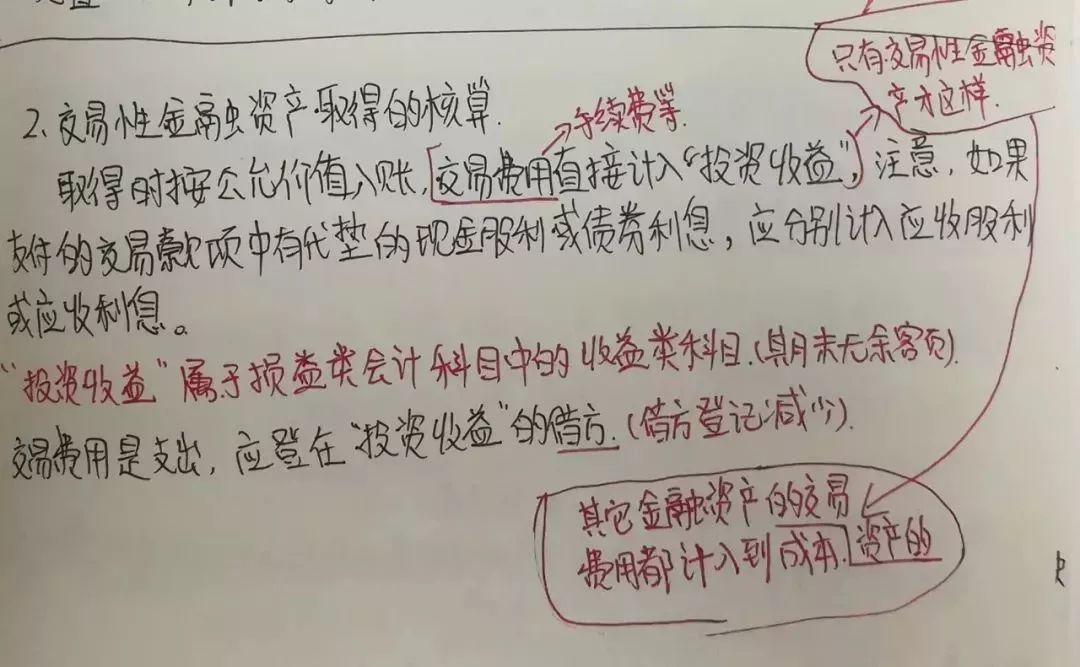 只有交易性金融资
产才这样.
2、交易性金融资产取得的核算.
→手续费等.
取得时按公允价值入账,交易费用直接计入“投资收益”,注意,如果
支付的交易款项中有代垫的现金股利或债券利息,应分别计入应收股利
或应收利息。
“投资收益”属于损益类会计科目中的收益类科目.(期末无余额).
交易费用是支出,应登在“投资收益”的借方.(借方登记减少).
其它金融资产的交易
费用都计入到成本.资产的